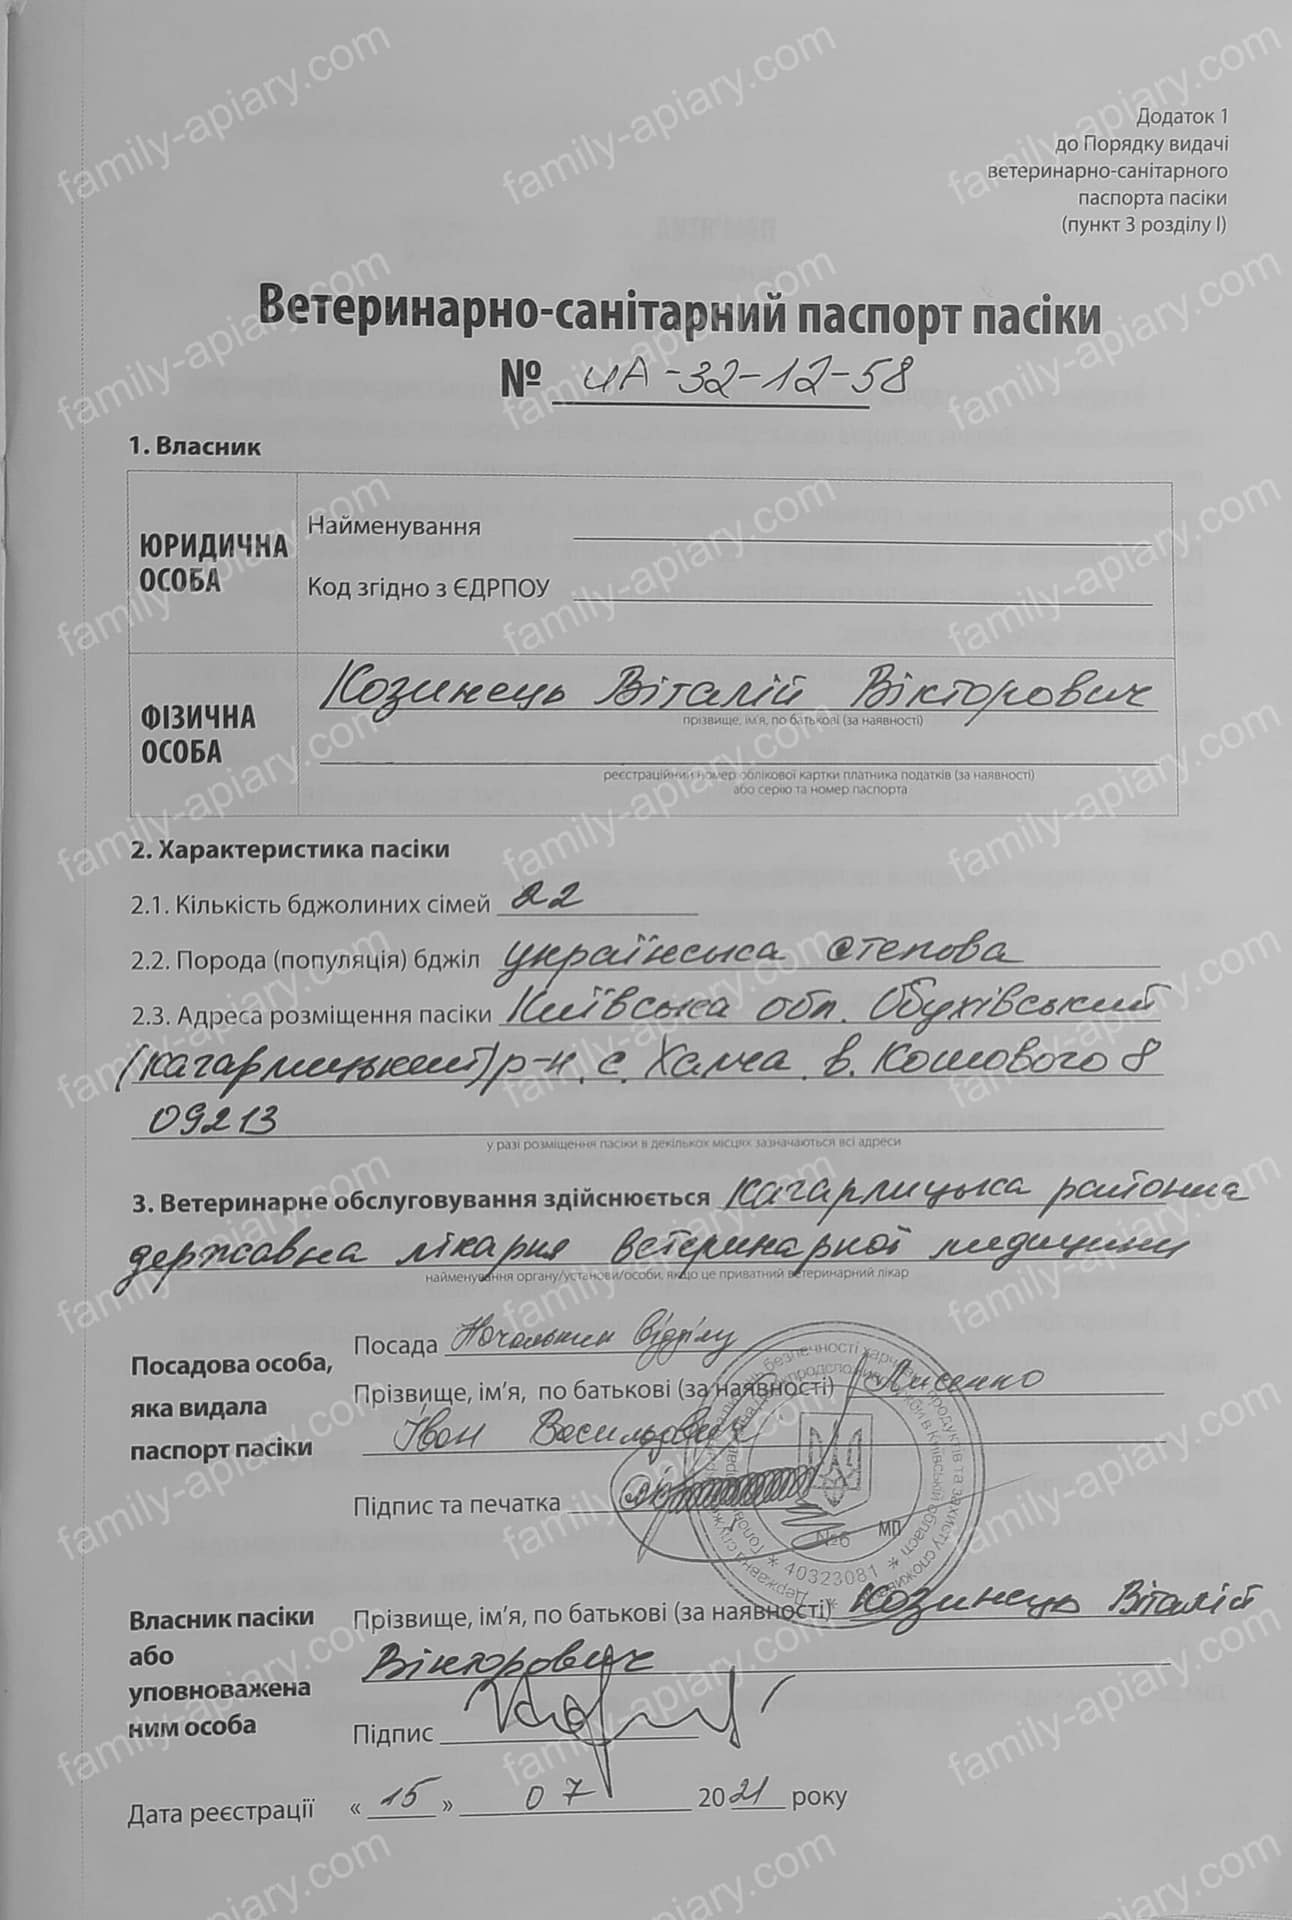 Додаток 1
до Порядку видачі
ветеринарно-санітарного
паспорта пасіки
(пункт 3 розділу І)
Ветеринарно-санітарний паспорт пасіки
№ UA-32-12-58
1. Власник
ЮРИДИЧНА ОСОБА
Найменування
Код згідно з ЄДРПОУ
ФІЗИЧНА ОСОБА
Козинець Віталій Вікторович
прізвище, ім'я, по батькові (за наявності)
реєстраційний номер облікової картки платника податків (за наявності)
або серію та номер паспорта
2. Характеристика пасіки
2.1. Кількість бджолиних сімей 22
2.2. Порода (популяція) бджіл українська степова
2.3. Адреса розміщення пасіки Київська обл. Обухівський
(кагарлицький) р-н. с. Халча в. Кошового 8
09213
у разі розміщення пасіки в декількох місцях зазначаються всі адреси
3. Ветеринарне обслуговування здійснюється Кагарлицька районна
державна лікарня ветеринарної медицини
найменування органу/установи/особи, якщо це приватний ветеринарний лікар
Посадова особа,
яка видала
паспорт пасіки
Посада Начальник відділу
Прізвище, ім'я, по батькові (за наявності) Лисенко
Іван Васильович
Підпис та печатка
МП
№6
* 40323081 *
Власник пасіки
або
уповноважена
ним особа
Прізвище, ім'я, по батькові (за наявності) Козинець Віталій
Вікторович
Підпис
Дата реєстрації « 15 » 07 2021 року
family-apiary.com